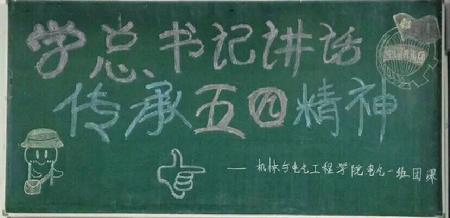 学总书记讲话
传承五四精神
——机械与电气工程学院电气一班团课